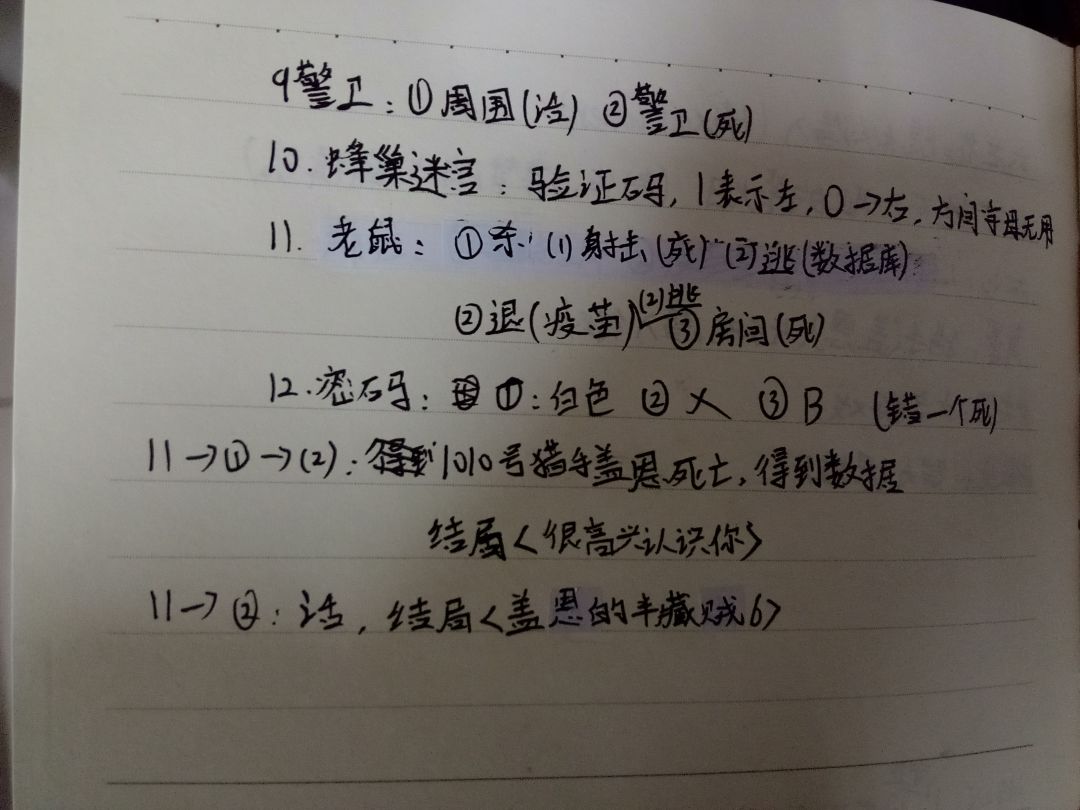 9警卫:①周围(活) ②警卫(死)
10.蜂巢迷宫:验证码,1表示左,0→右,方间字母无用
11.老鼠:①杀 (1)射击(死) (2)逃(数据库)
②退(疫苗) (2)逃 ③房间(死)
12.密码:①:白色 ②X ③B (错一个死)
11→①→(2):得到1010号猎手盖恩死亡,得到数据
结局<很高兴认识你>
11→②:活,结局<盖恩的半藏贼6>